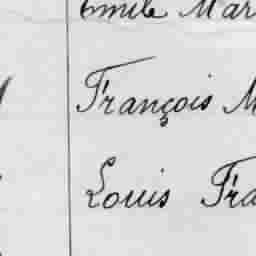 Emile Mar
François M
Louis Fra